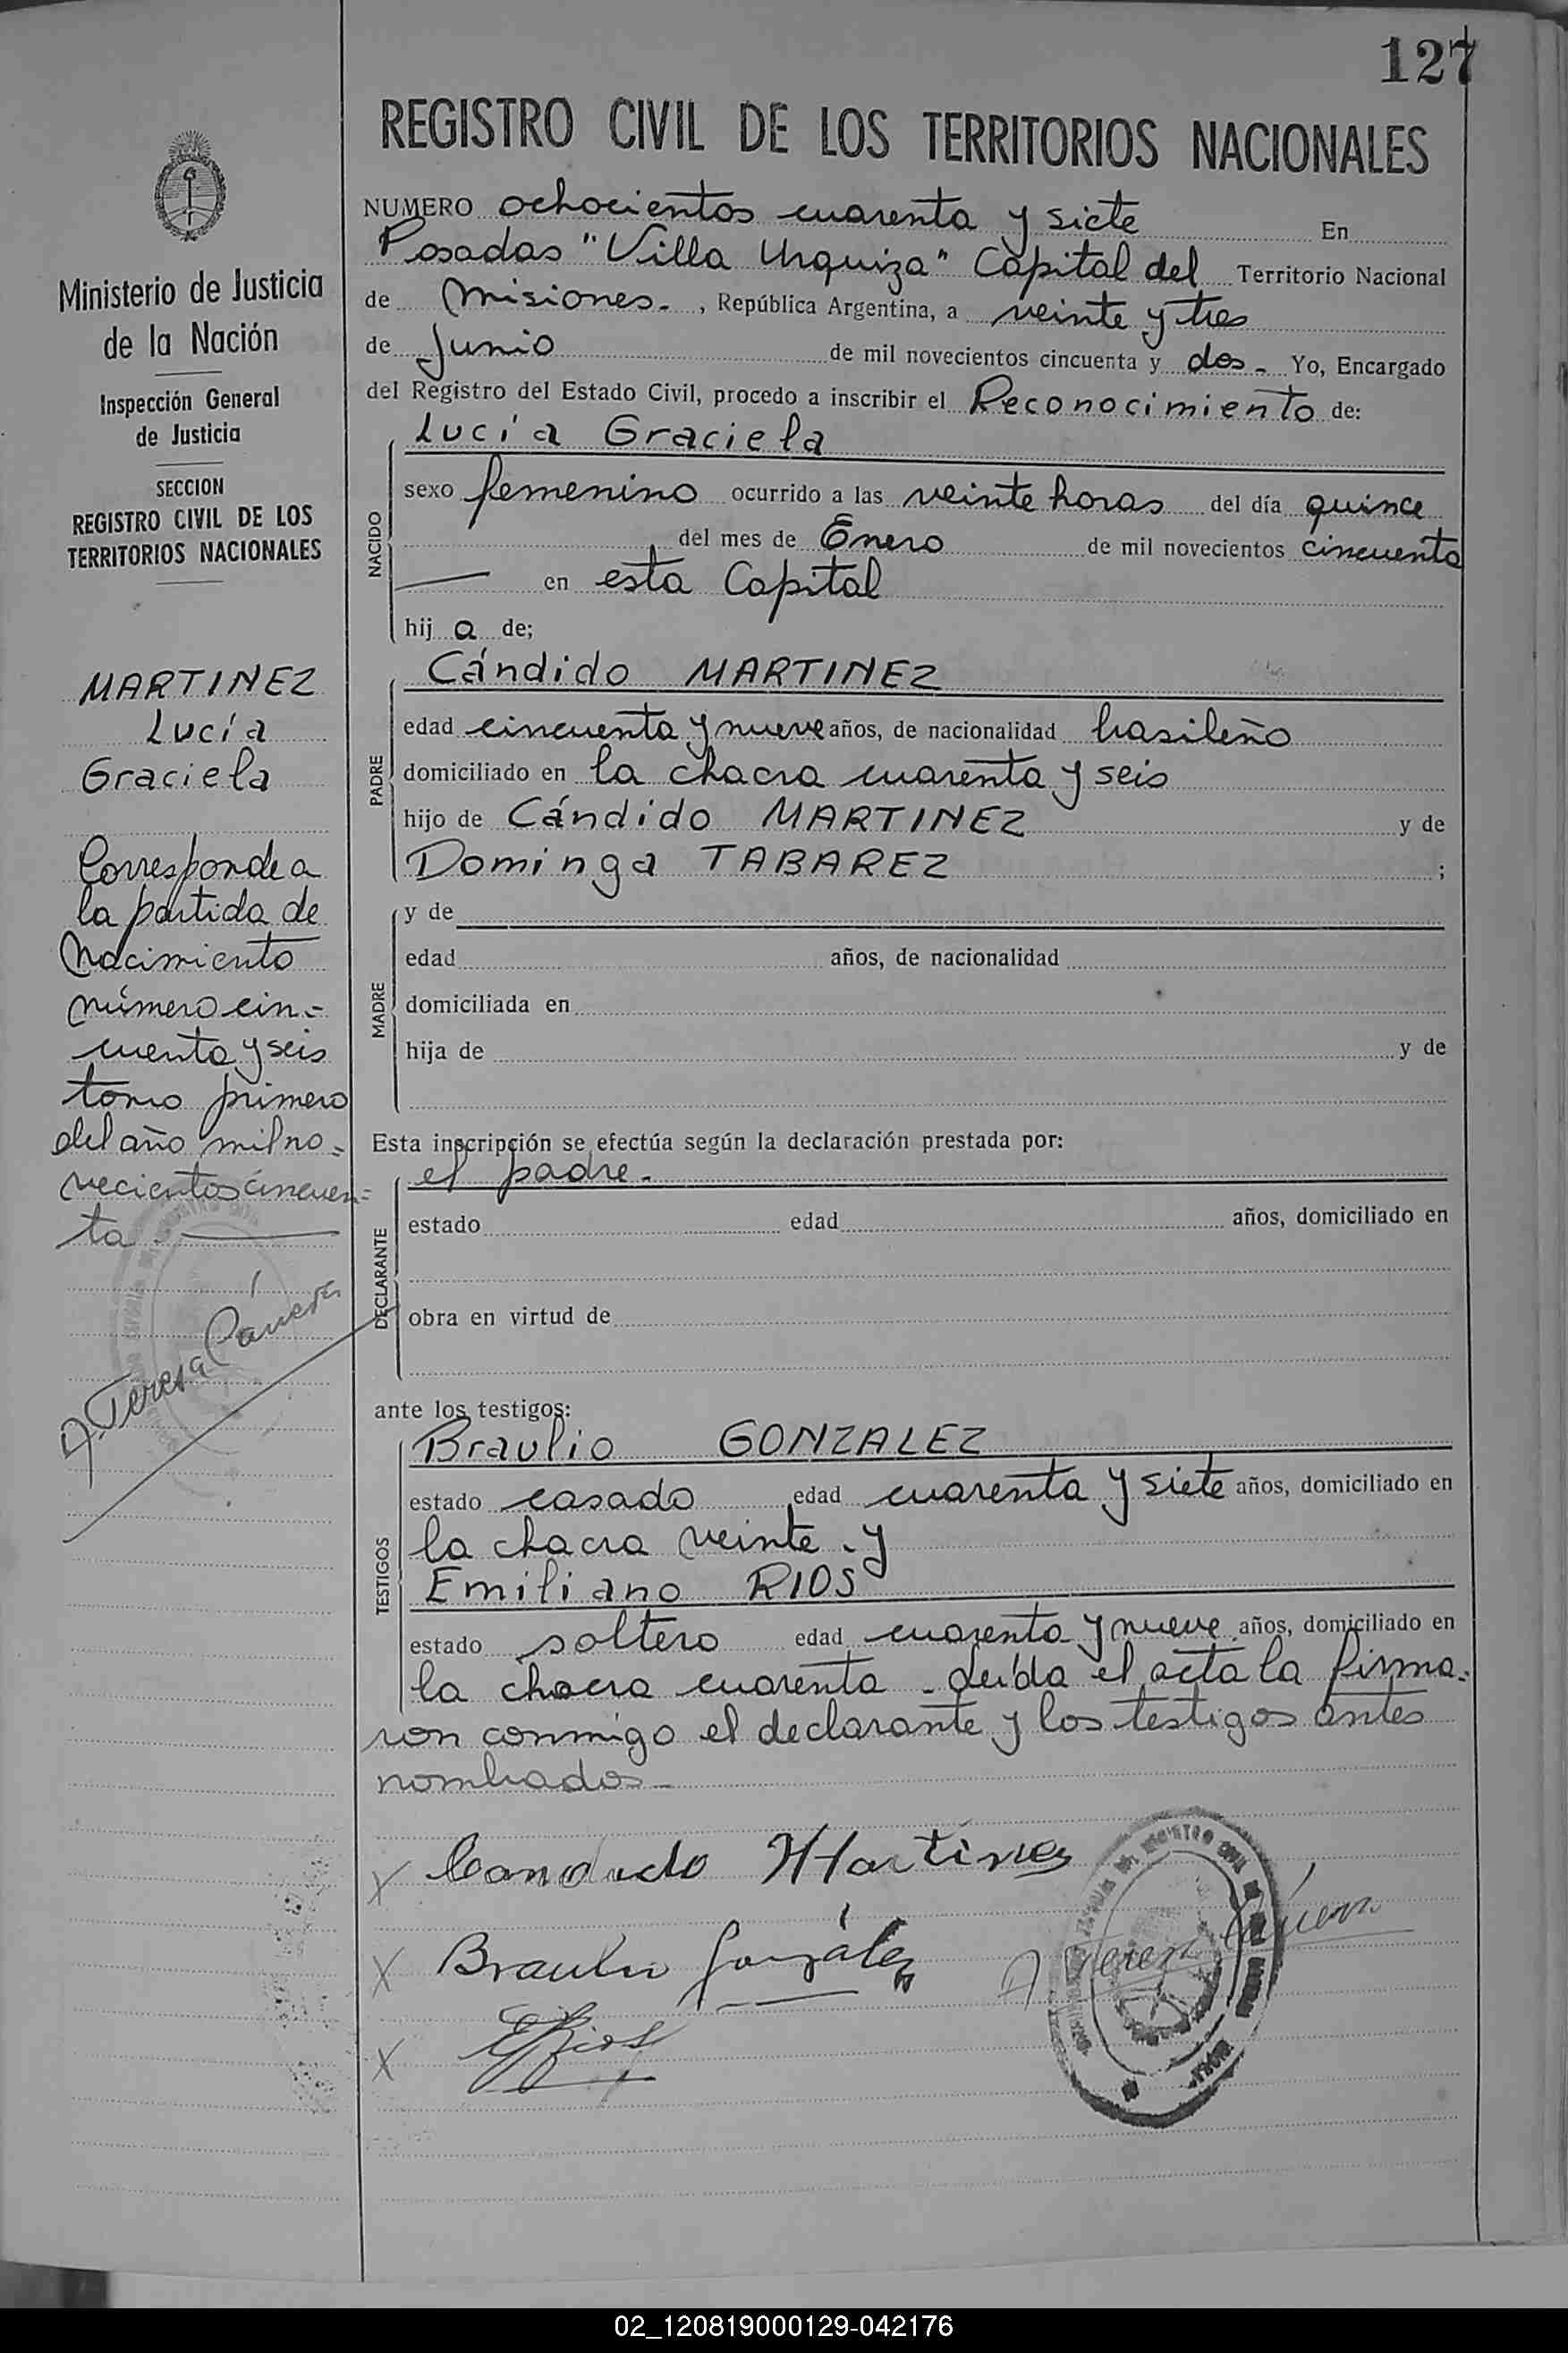 127
REGISTRO CIVIL DE LOS TERRITORIOS NACIONALES
Ministerio de Justicia
de la Nación
Inspección General
de Justicia
SECCION
REGISTRO CIVIL DE LOS
TERRITORIOS NACIONALES
MARTINEZ
Lucía
Graciela
Corresponde a
la partida de
Nacimiento
número cin-
cuenta y seis
tomo primero
del año mil no-
vecientos cincuen-
ta
A. Teresa
NUMERO ochocientos cuarenta y siete En
Posadas "Villa Urquiza" Capital del Territorio Nacional
de Misiones-, República Argentina, a veinte y tres
de Junio de mil novecientos cincuenta y dos- Yo, Encargado
del Registro del Estado Civil, procedo a inscribir el Reconocimiento de:
Lucía Graciela
NACIDO
sexo femenino ocurrido a las veinte horas del día quince
del mes de Enero de mil novecientos cincuenta
— en esta Capital
hij a de;
Cándido MARTINEZ
PADRE
edad cincuenta y nueve años, de nacionalidad brasileño
domiciliado en la chacra cuarenta y seis
hijo de Cándido MARTINEZ y de
Dominga TABAREZ ;
MADRE
y de
edad años, de nacionalidad
domiciliada en
hija de y de
Esta inscripción se efectúa según la declaración prestada por:
el padre-
DECLARANTE
estado edad años, domiciliado en
obra en virtud de
ante los testigos:
Braulio GONZALEZ
TESTIGOS
estado casado edad cuarenta y siete años, domiciliado en
la chacra veinte - y
Emiliano RIOS
estado soltero edad cuarenta y nueve años, domiciliado en
la chacra cuarenta - Leída el acta la firma-
ron conmigo el declarante y los testigos antes
nombrados-
x Candido Martinez
x Braulio González
x E Rios
A Teresa
02_120819000129-042176